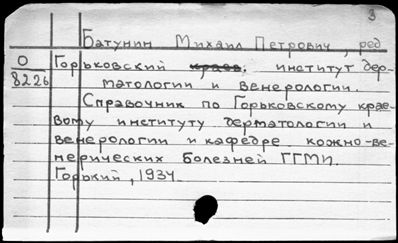 3
Батунин Михаил Петрович, ред
О
8226
Горьковский краев. институт дер-
матологии и венерологии.
Справочник по Горьковскому крае-
вому институту дерматологии и
венерологии и кафедре кожно-ве-
нерических болезней ГГМИ.
Горький, 1934